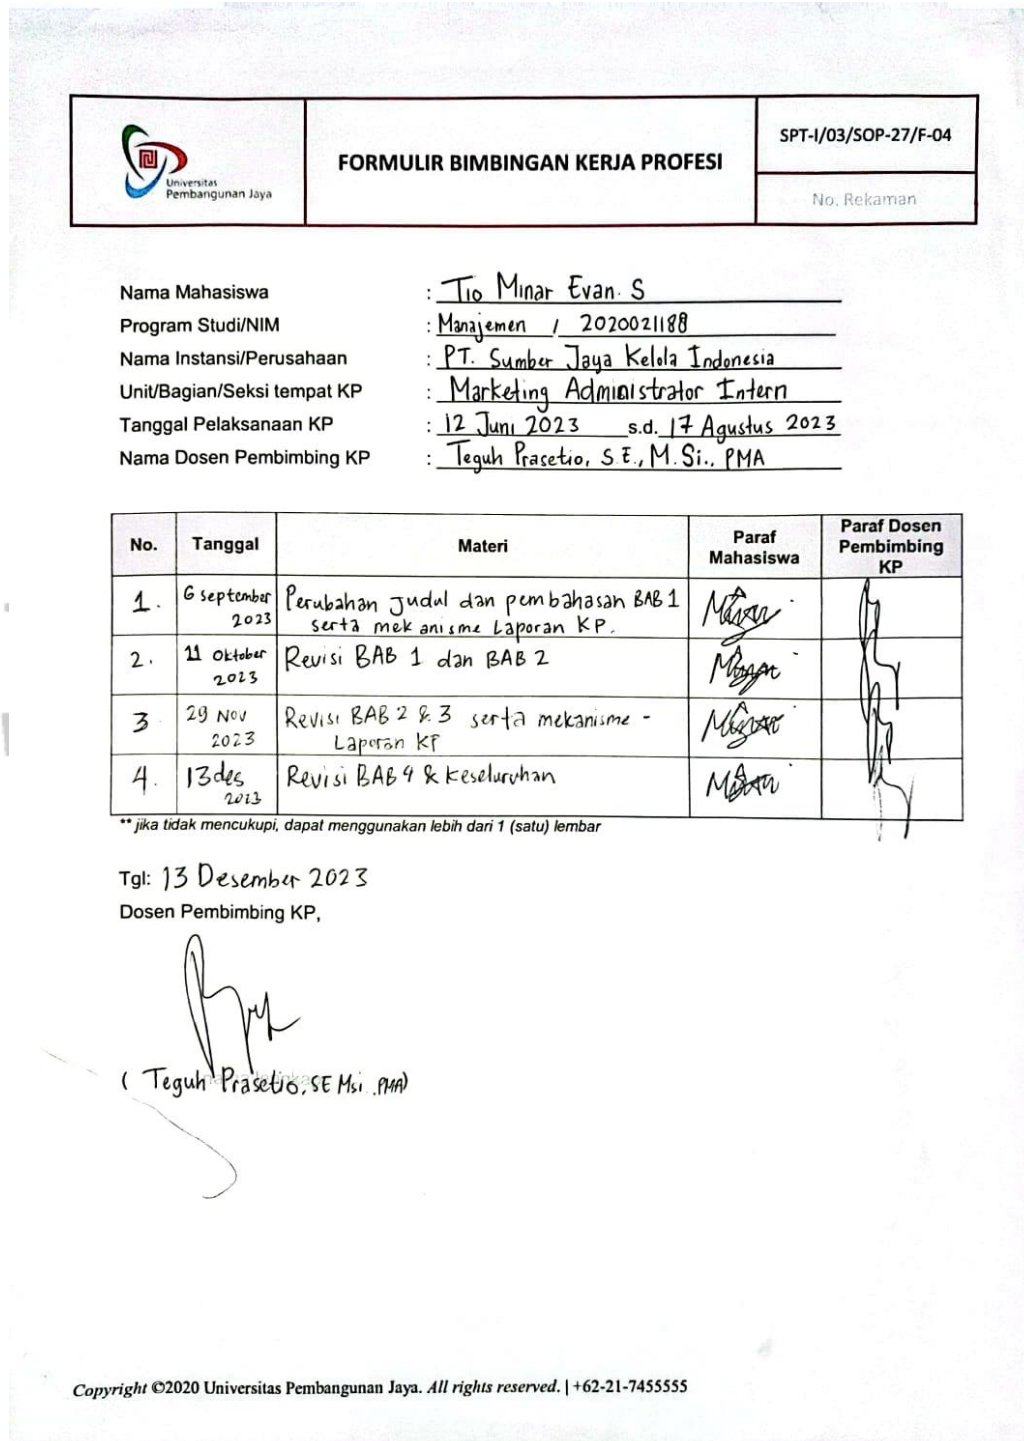 Universitas
Pembangunan Jaya
FORMULIR BIMBINGAN KERJA PROFESI
SPT-I/03/SOP-27/F-04
No. Rekaman
Nama Mahasiswa : Tio Minar Evan. S
Program Studi/NIM : Manajemen / 2020021188
Nama Instansi/Perusahaan : PT. Sumber Jaya Kelola Indonesia
Unit/Bagian/Seksi tempat KP : Marketing Administrator Intern
Tanggal Pelaksanaan KP : 12 Juni 2023 s.d. 17 Agustus 2023
Nama Dosen Pembimbing KP : Teguh Prasetio, S.E., M.Si., PMA
No. Tanggal Materi Paraf Mahasiswa Paraf Dosen Pembimbing KP
1. 6 September 2023 Perubahan Judul dan pembahasan BAB 1
serta mekanisme Laporan KP.
2. 11 Oktober 2023 Revisi BAB 1 dan BAB 2
3 29 Nov 2023 Revisi BAB 2 & 3 serta mekanisme -
Laporan KP
4. 13 des 2023 Revisi BAB 4 & Keseluruhan
** jika tidak mencukupi, dapat menggunakan lebih dari 1 (satu) lembar
Tgl: 13 Desember 2023
Dosen Pembimbing KP,
( Teguh Prasetio, SE Msi .PMA)
Copyright ©2020 Universitas Pembangunan Jaya. All rights reserved. | +62-21-7455555